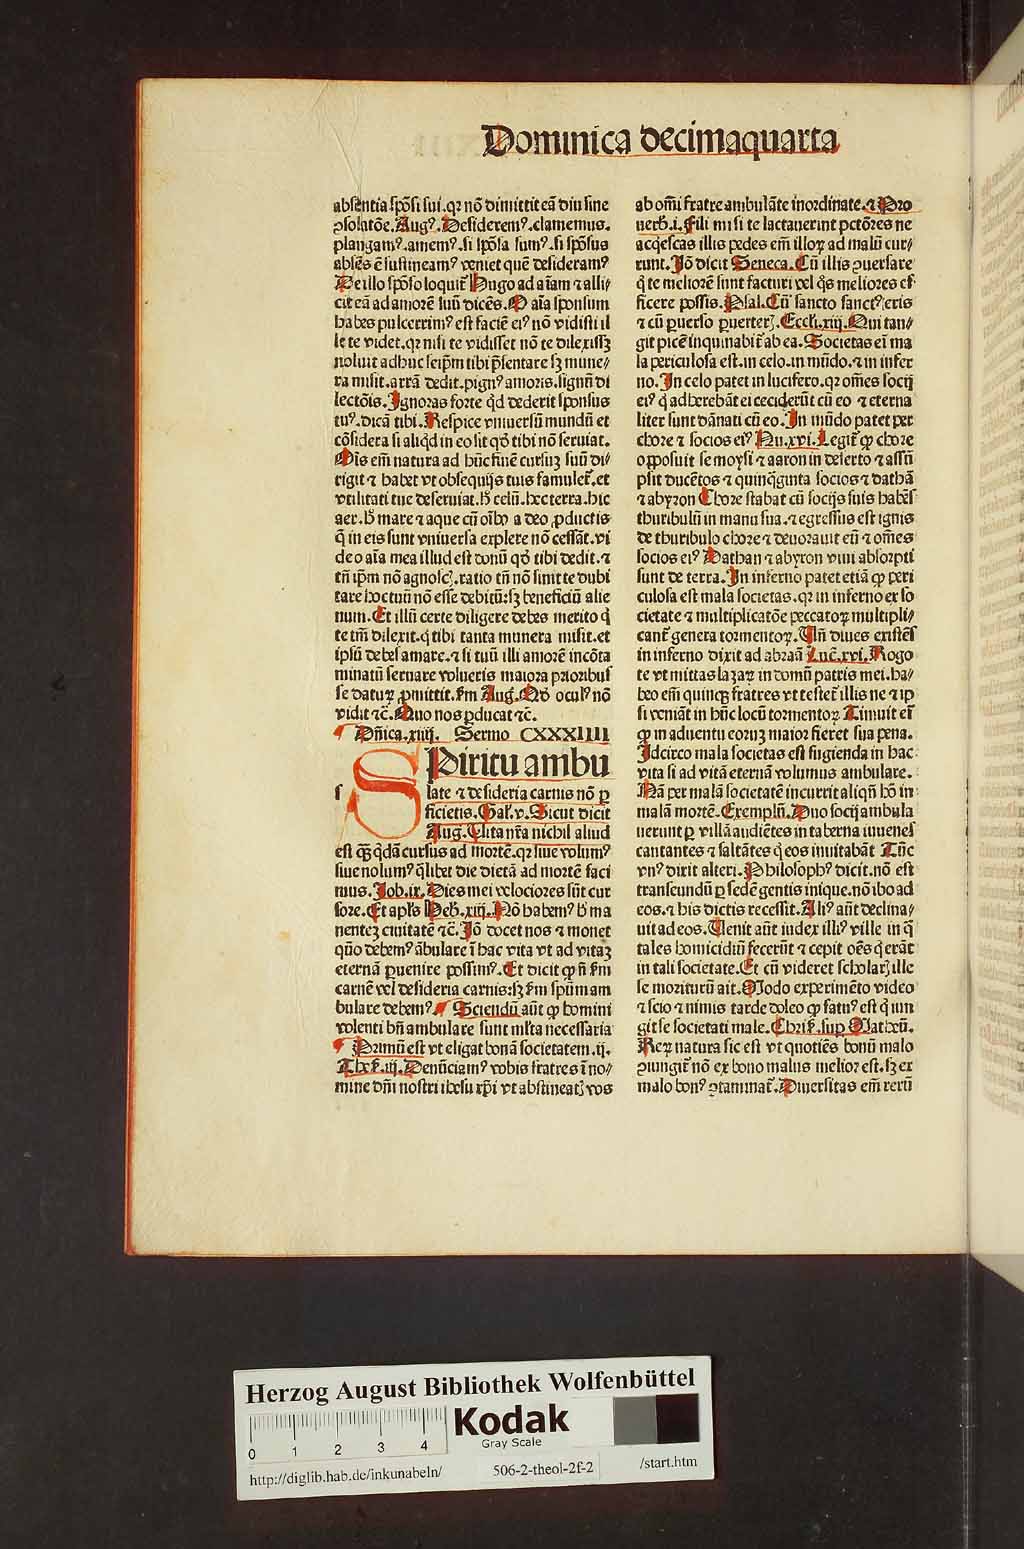 Dominica decimaquarta
absentia spōsi sui. qꝛ nō dimittit eā diu sine
ꝯsolatōe. Augꝰ. Desideremꝰ. clamemus.
plangamꝰ. amemꝰ. si spōsa sumꝰ. si spōsus
absēs ē sustineamꝰ veniet quē desideramꝰ
De illo spōso loquit᷑ Hugo ad aīam ⁊ alli⸗
cit eā ad amorē suū dicēs. O aīa sponsum
habes pulcerrimꝰ est faciē eiꝰ nō vidisti il
le te videt. qꝛ nisi te vidisset nō te dilexissꝫ
noluit adhuc seip̄m tibi p̄sentare sꝫ mune⸗
ra misit. arrā dedit. pignꝰ amoris. signū di
lectōis. Ignoras forte qͥd dederit sponsus
tuꝰ. dicā tibi. Respice vniuersū mundū et
cōsidera si aliqͥd in eo sit qd̓ tibi nō seruiat.
Oīs em̄ natura ad hūc finē cursuꝫ suū di⸗
rigit ⁊ habet vt obsequijs tuis famulet᷑. et
vtilitati tue deseruiat. H̓ celū. hec terra. hic
aer. H̓ mare ⁊ aque cū oībꝰ a deo ꝓductis
q̄ in eis sunt vniuersa explere nō cessāt. vi
de o aīa mea illud est donū qd̓ tibi dedit. ⁊
tn̄ ip̄m nō agnoscꝫ. ratio tn̄ nō sinit te dubi
tare hoc tuū nō esse debitū: sꝫ beneficiū alie
num. Et illū certe diligere debes merito qͥ
te tm̄ dilexit. qͥ tibi tanta munera misit. et
ipsū debes amare. ⁊ si tuū illi amorē incōta
minatū seruare volueris maiora prioribus
se daturꝫ ꝓmittit. ẜm Aug. Qd̓ oculꝰ nō
vidit ⁊c̄. Quo nos ꝑducat ⁊c̄.
Dn̄ica. xiiij. Sermo CXXXIIII
SPiritu ambu
s
late ⁊ desideria carnis nō ꝑ
ficietis. Gal̓. v. Sicut dicit
Aug. Uita nr̄a nichil aliud
est qꝫ qͥdā cursus ad mortē. qꝛ siue volumꝰ
siue nolumꝰ qͥlibet die dietā ad mortē faci
mus. Job. ix. Dies mei velociores sūt cur
sore. Et apl̓s Heb̓. xiij. Nō habemꝰ h̓ ma
nenteꝫ ciuitatē ⁊c̄. Jō docet nos ⁊ monet
qn̄o debemꝰ ābulare ī hac vita vt ad vitaꝫ
eternā ꝑuenire possimꝰ. Et dicit ꝙ nͦ ẜm
carnē vel desideria carnis: sꝫ ẜm spūm am
bulare debemꝰ. Sciendū aūt ꝙ homini
volenti bn̄ ambulare sunt ml̓ta necessaria
Primū est vt eligat bonā societatem. ij.
Thes. iij. Denūciamꝰ vobis fratres ī no⸗
mine dn̄i nostri ihesu xp̄i vt abstineatꝫ vos
ab omī fratre ambulāte inordinate. ⁊ Pro
uerb̓. i. Fili mi si te lactauerint pctōres ne
acqͥescas illis pedes em̄ illoꝝ ad malū cur⸗
runt. Jō dicit Seneca. Cū illis ꝯuersare
qͥ te meliorē sunt facturi vel qͦs meliores ef
ficere possis. Psal. Cū sancto sanctꝰ eris
⁊ cū ꝑuerso ꝑuerterꝫ. Eccl̓i. xiij. Qui tan⸗
git picē inquinabit᷑ ab ea. Societas eī ma
la periculosa est. in celo. in mūdo. ⁊ in infer
no. In celo patet in lucifero. qꝛ omēs socij
eiꝰ qͥ adherebāt ei ceciderūt cū eo ⁊ eterna
liter sunt dānati cū eo. In mūdo patet per
chore ⁊ socios eiꝰ Nu. xvi. Legit᷑ ꝙ chore
opposuit se moysi ⁊ aaron in deserto ⁊ assū
psit ducētos ⁊ quinqͣginta socios ⁊ dathā
⁊ abyron Chore stabat cū socijs suis habēs
thuribulū in manu sua. ⁊ egressus est ignis
de thuribulo chore ⁊ deuorauit eū ⁊ omēs
socios eiꝰ Dathan ⁊ abyron viui absorpti
sunt de terra. In inferno patet etiā ꝙ peri
culosa est mala societas. qꝛ in inferno ex so
cietate ⁊ multiplicatōe peccatoꝝ multipli⸗
cant᷑ genera tormentoꝝ. Un̄ diues existēs
in inferno dixit ad abraā Luc̄. xvi. Rogo
te vt mittas lazaꝝ in domū patris mei. ha⸗
beo em̄ quinqꝫ fratres vt testet᷑ illis ne ⁊ ip
si veniāt in hūc locū tormentoꝝ Timuit eī
ꝙ in aduentu eoruꝫ maior fieret sua pena.
Idcirco mala societas est fugienda in hac
vita si ad vitā eternā volumus ambulare.
Nā per malā societatē incurrit aliqͥn̄ hō in
malā mortē. Exemplū. Duo socij ambula
uerunt ꝑ villā audiētes in taberna iuuenes
cantantes ⁊ saltātes qͥ eos inuitabāt Tūc
vnꝰ dixit alteri. Philosophꝰ dicit. nō est
transeundū ꝑ sedē gentis inique. nō ibo ad
eos. ⁊ his dictis recessit. Aliꝰ aūt declina⸗
uit ad eos. Uenit aūt iudex illiꝰ ville in q̄
tales homicidiū fecerūt ⁊ cepit oēs qͥ erāt
in tali societate. Et cū videret scholarꝫ ille
se moriturū ait. Modo experimēto video
⁊ scio ⁊ nimis tarde doleo ꝙ fatuꝰ est qͥ iun
git se societati male. Chris. sup Matheū.
Reꝝ natura sic est vt quotiēs bonū malo
ꝯiungit᷑ nō ex bono malus melior est. sꝫ ex
malo bonꝰ ꝯtaminat᷑. Diuersitas em̄ rerū
Herzog August Bibliothek Wolfenbüttel
0 1 2 3 4
Kodak
Gray Scale
http://diglib.hab.de/inkunabeln/ 506-2-theol-2f-2 /start.htm